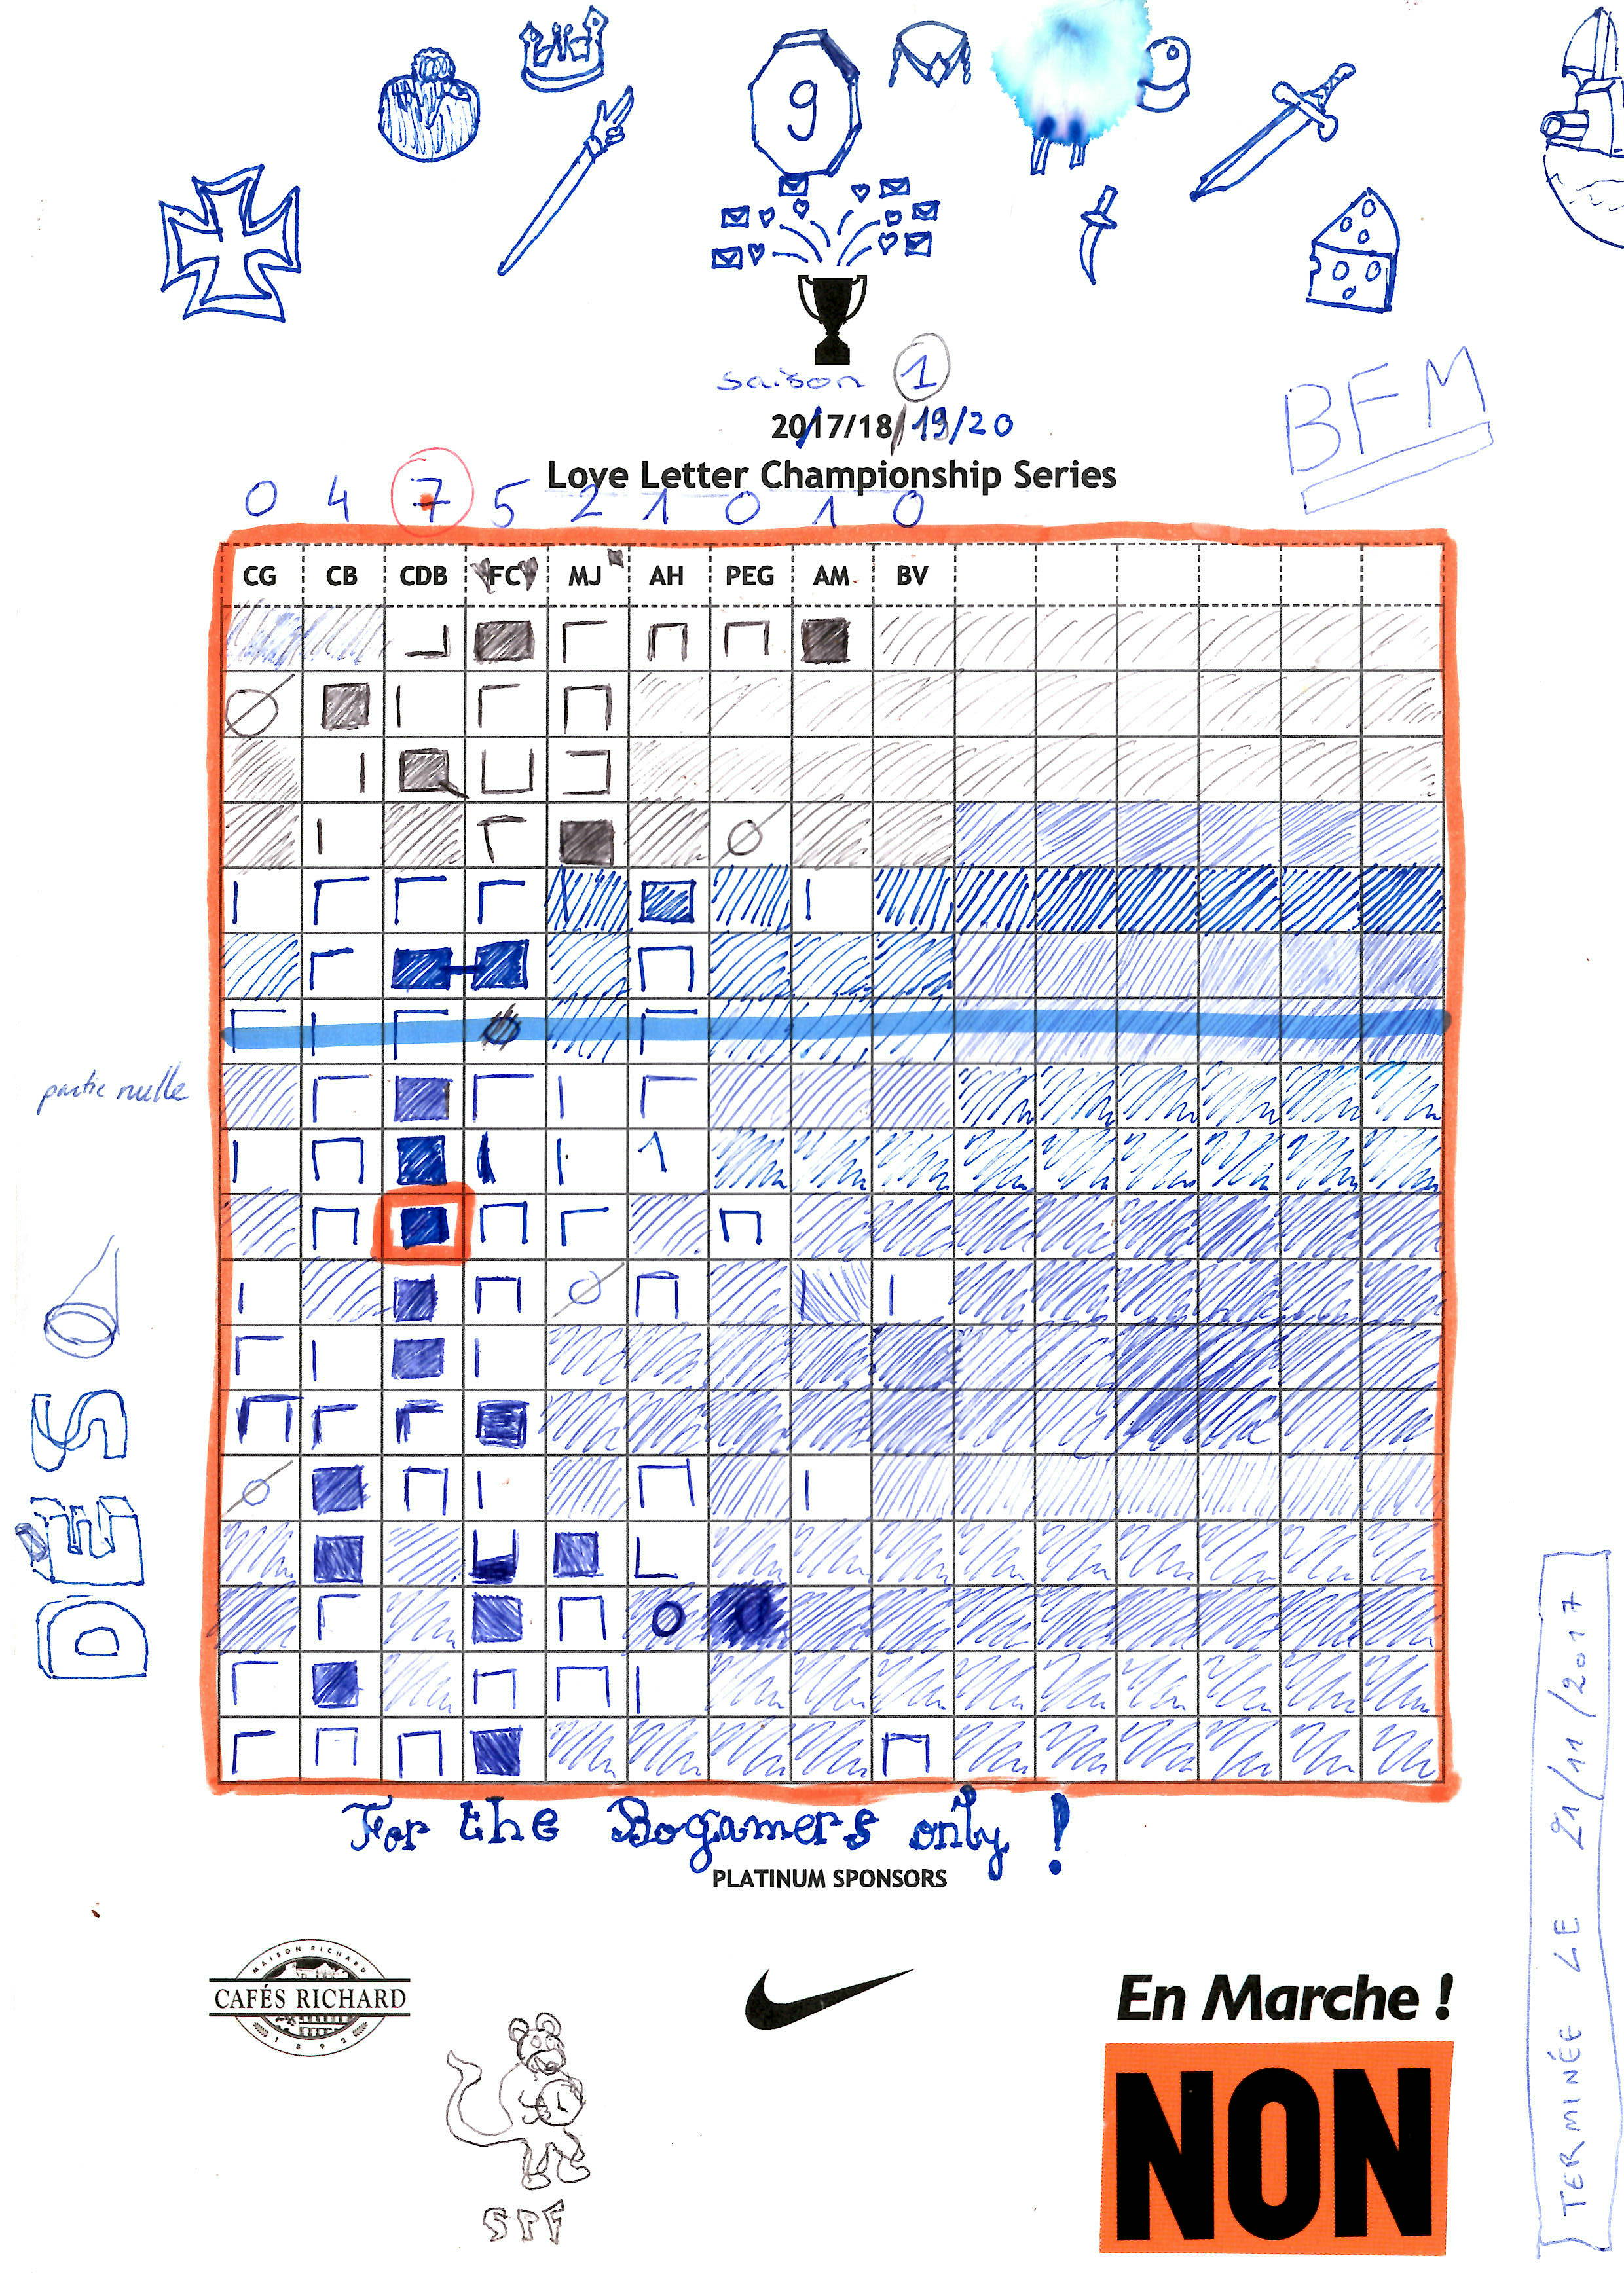 9
saison 1
2017/18/19/20
BFM
Love Letter Championship Series
0 4 7 5 2 1 0 1 0
CG CB CDB FC MJ AH PEG AM BV
partie nulle
DÉS
For the Bogamers only !
PLATINUM SPONSORS
MAISON RICHARD
CAFÉS RICHARD
1892
En Marche !
NON
SPF
TERMINÉE LE 21/11/2017